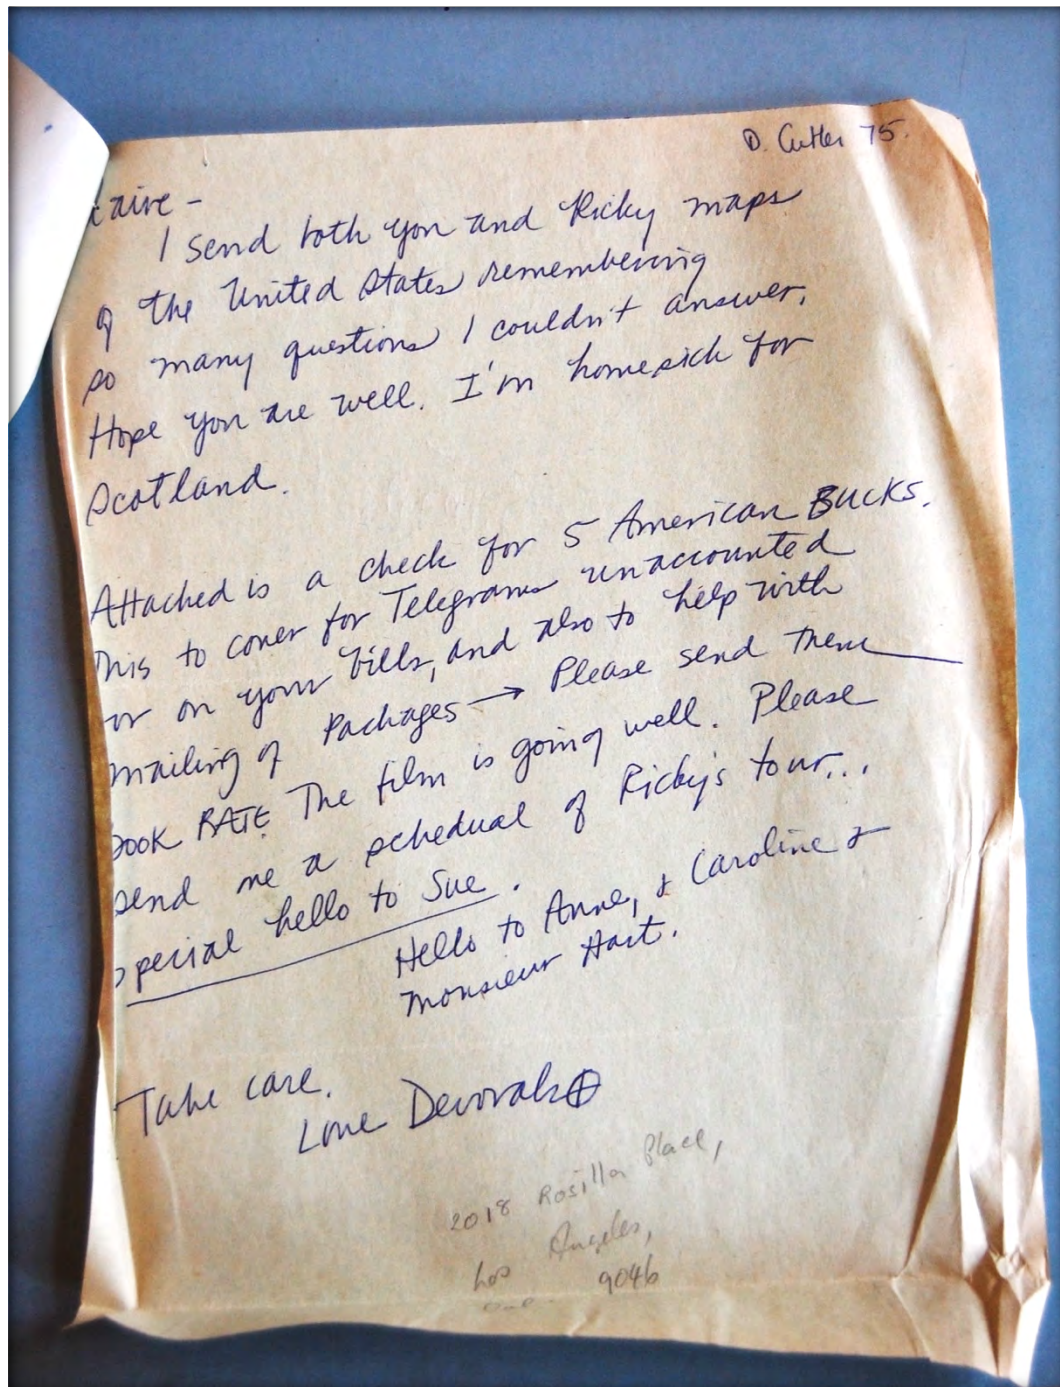 D. Cutler 75.
aire -
I send both you and Ricky maps
of the United States remembering
so many questions I couldn't answer.
Hope you are well. I'm homesick for
Scotland.
Attached is a check for 5 American BUCKS.
This to cover for Telegrams unaccounted
or on your bills, and also to help with
mailing of Packages → Please send them
BOOK RATE The film is going well. Please
send me a schedual of Ricky's tour...
special hello to Sue.
Hello to Anne, & Caroline &
Monsieur Hart.
Take care.
Love Devorah
2018 Rosilla Place,
Los Angeles,
9046